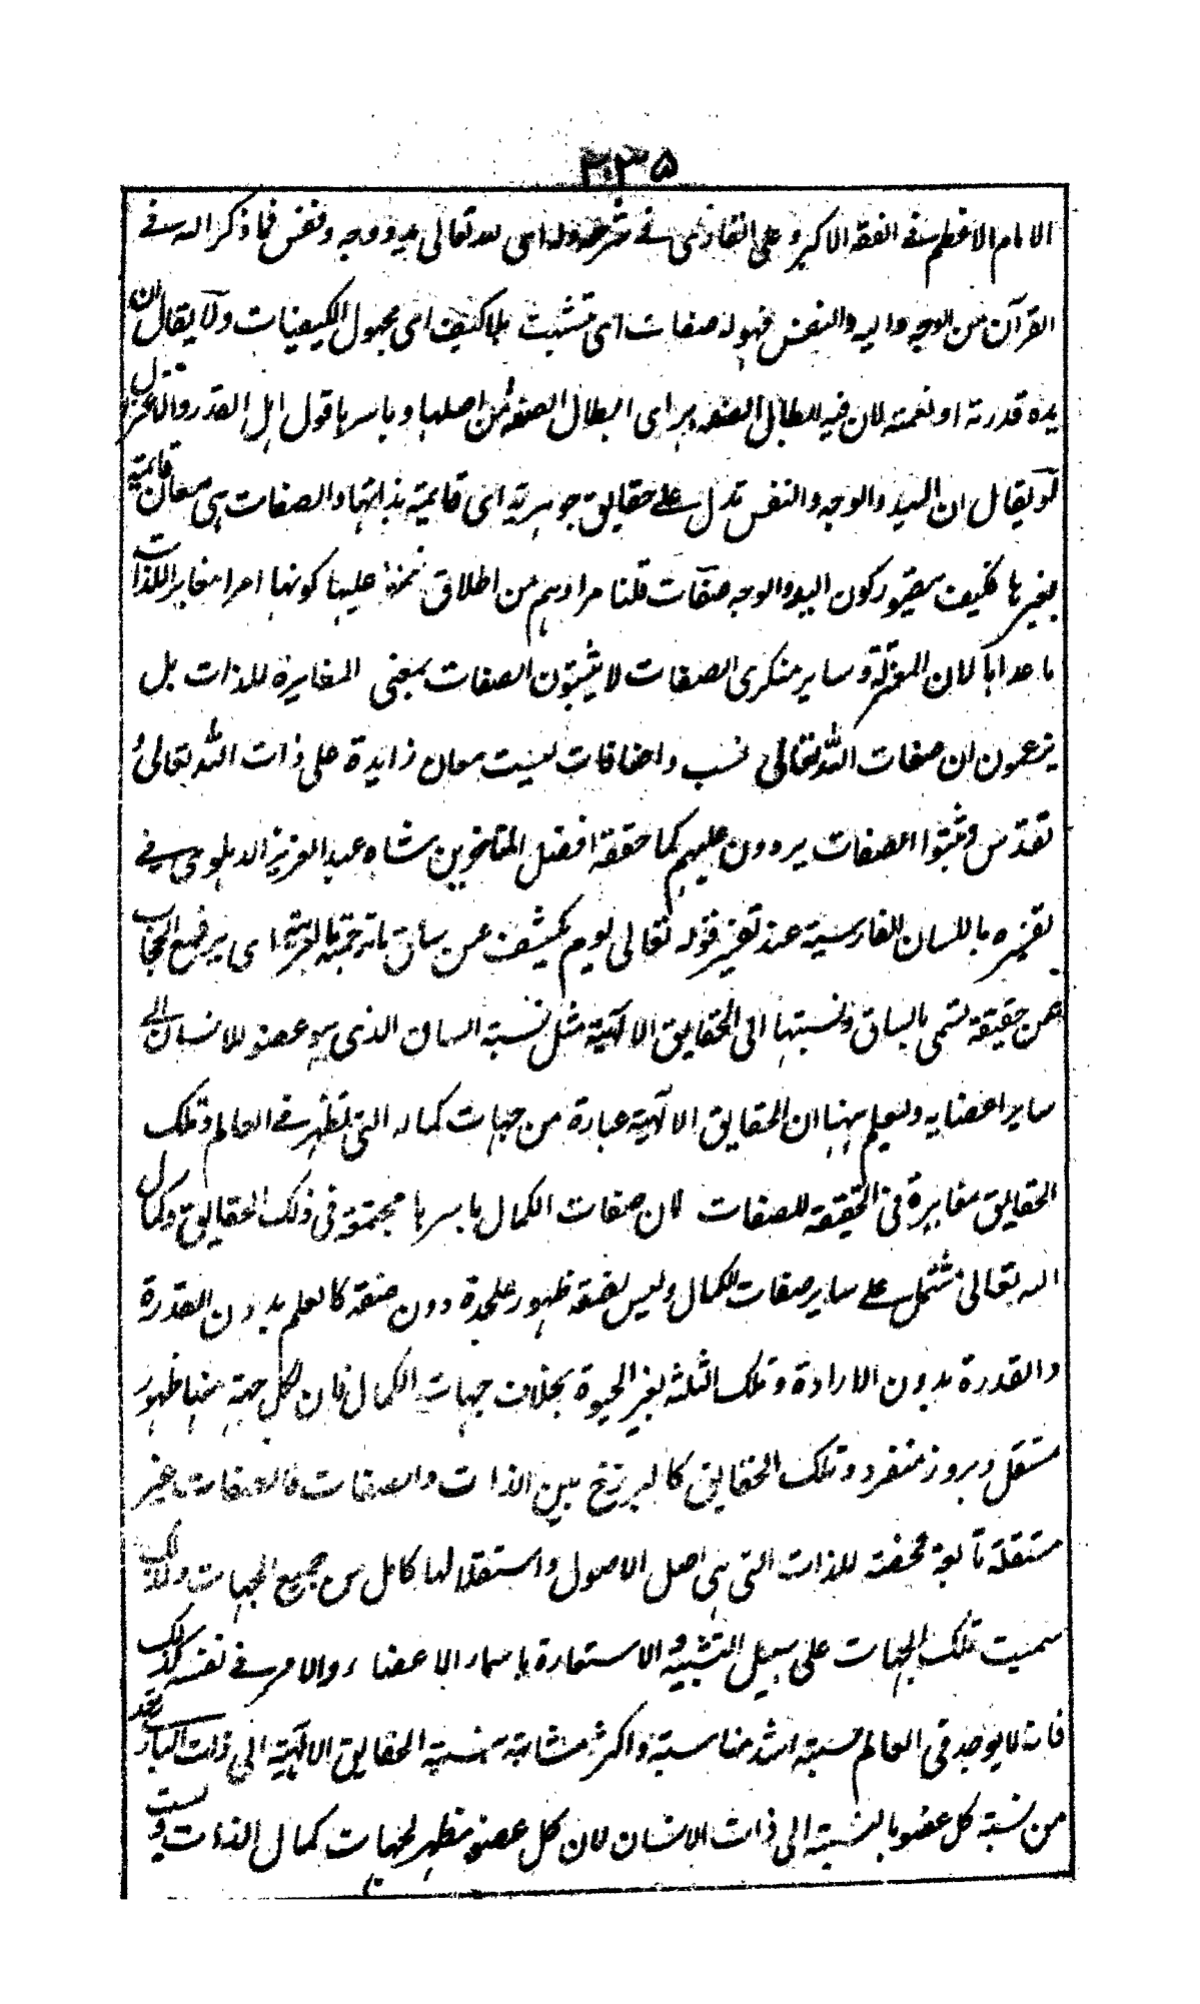 ٢٣٥
الامام الاعظم في الفقه الاكبر وعلي القاري في شرحه وله اي لله تعالى يد ووجه ونفس فما ذكر الله في
القرآن من الوجه واليد والنفس فهو له صفات اي تثبت بلا كيف اي مجهول الكيفيات ولا يقال ان
يده قدرته او نعمته لان فيه ابطال الصفة اي ابطال الصفة من اصلها وباسرها قول اهل القدر والاعتزال
لو يقال ان اليد والوجه والنفس تدل على حقايق جوهرية اي قايمة بذاتها والصفات هي معان قايمة
بغيرها فكيف يتصور كون اليد والوجه صفات قلنا مرادهم من اطلاق عليها كونها امرا مغايرا للذات
لان المعتزلة وساير منكرى الصفات لا يثبتون الصفات بمعنى المغايرة للذات بل
يزعمون ان صفات الله تعالى نسب واضافات ليست معان زايدة على ذات الله تعالى
تقدس ومثبتوا الصفات يردون عليهم كما حققه افضل المتاخرين شاه عبد العزيز الدهلوي في
تفسيره باللسان الفارسية عند تفسير قوله تعالى يوم يكشف عن ساق ما ترجمته بالعربية اي يرفع الحجاب
عن حقيقة تسمى بالساق ونسبتها الى الحقايق الالهية مثل نسبة الساق الذي هو عضو للانسان الى
ساير اعضايه وليعلم ههنا ان الحقايق الالهية عبارة من جهات كماله التي تظهر في العالم وتلك
الحقايق مغايرة في الحقيقة للصفات لان صفات الكمال باسرها مجتمعة في ذلك الحقايق وكمال
الله تعالى مشتمل على ساير صفات الكمال وليس لصفة ظهور علحدة دون صفة كالعلم بدون القدرة
والقدرة بدون الارادة وتلك الثلثة بغير الحيوة بخلاف جهات الكمال فان لكل جهة منها ظهور
مستقل وبروز منفرد وتلك الحقايق كالبرزخ بين الذات والصفات فالصفات غير
مستقلة تابعة محضة للذات التي هي اصل الاصول واستقلالها كامل من جميع الجهات ولذلك
سميت تلك الجهات على سبيل التشبيه والاستعارة باسماء الاعضاء والامر في نفسه كذلك
فانه لا يوجد في العالم نسبة اشد مناسبة واكثر مشابهة بنسبة الحقايق الالهية الى ذات البارى
من نسبة كل عضو بالنسبة الى ذات الانسان لان كل عضو مظهر لجهات كمال الذات وليست